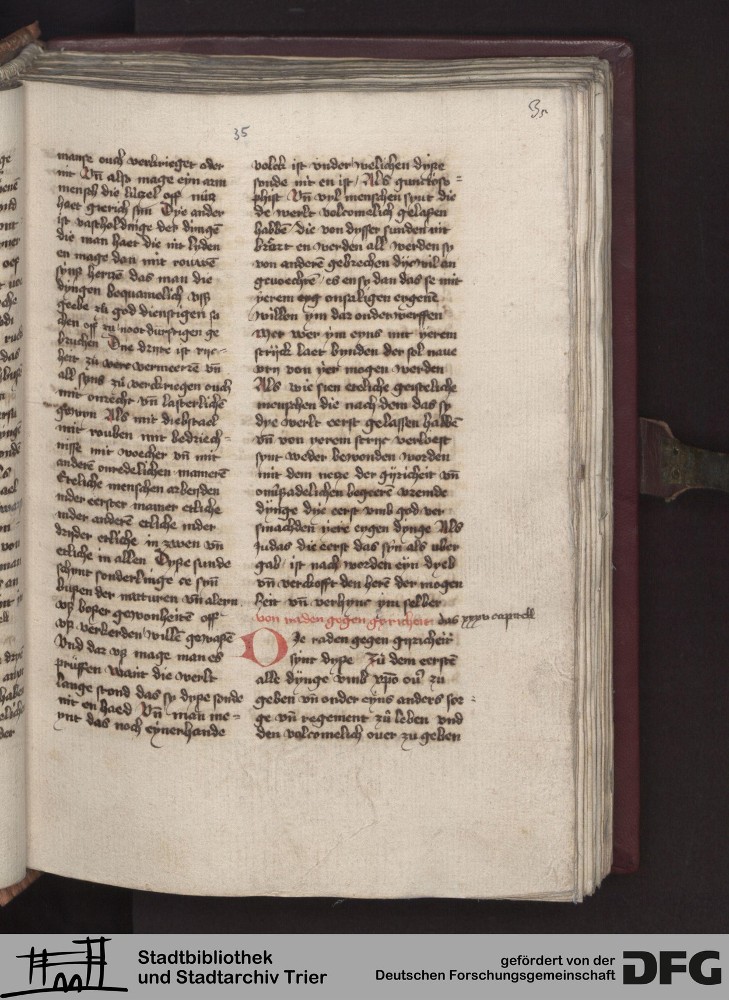 35
mange ouch verkrieget oder
nit Vñ also mage eyn arm
mensch die kugel off nutz
haet gierich sin Dye ander
ist vastholdinge der dingē
die man haet die nit lyden
en mage dan mit rouwē
syns hertzē das man die
dyngen bequamelich vsß
geebe zu god dienstigen sa
chen off zu nootdurftigen ge
bruchen Die dritte ist
heit zu vere vermeerrē vñ
all syns zu verckriegen ouch
mit onrecht vñ lasterliche
gewyn Als mit diebstael
mit rouben mit bedriech-
nisse mit woecher vñ mit
anderē onredelichen manierē
Eteliche menschen arbeyden
inder eerster manier etliche
inder anderē etliche inder
dryder etliche in zwen vñ
etliche in allen Dyse sunde
schynt sonderlinge se syn
bußen der natturen vñ alleyn
vß boßer gewonheitē off
vß verkerden willē gewaßē
Vnd dar vß mage man es
prüffen Want die werlt
lange stond das sy dyße sonde
nit en haed Vñ man me-
ynt das noch eynerhande
volck ist vnder welichen dyße
sonde nit en ist / Als
phist Vñ vyl menschen synt die
de werlt volcomelich gelaßen
habbē die von dysser sunden nit
en werden all werden sy
von anderē gebrechen dyewil an
gevoechtē / es en sy dan das se mit
yerem eyg onsaligen eygenē
willen ym dar onderwerffen
Wer wer ym eyns mit yerem
strijck laet bynden der sol nauwe
vry von yer mogen werden
Als wie sien eteliche geisteliche
menschen die nach dem das sy
dye werlt eerst gelassen habbē
vñ von yerem stryc verloest
synt weder bewonden worden
mit dem netze der gyricheit vñ
begeerē vremde
dynge die eerst vmb god ver
smachden yere eygen dynge Als
Judas die eerst das syn als uber
gab / ist nach worden eyn dyeb
vñ verckofft den herē der mogen
heit vñ verhyng ym selber
von raden gegen gyricheit das xxxv capitell
Die raden gegen gyricheit
synt dyße Zu dem eerstē
alle dynge vmb xpō ou zu
geben vñ onder eyns anders sor-
ge vñ regement zu leben vnd
den volcomelich ouer zu geben
Stadtbibliothek
und Stadtarchiv Trier
gefördert von der
Deutschen Forschungsgemeinschaft
DFG